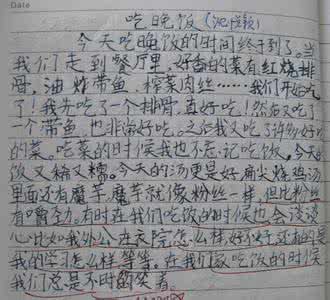 Date
吃晚饭
今天吃晚饭的时间终于到了。当
我们走到餐厅里,好香的菜有红烧排
骨,油炸带鱼,榨菜肉丝……我们开始吃
了!我先吃了一个排骨,真好吃!然后又吃了
一个带鱼,也非常好吃。之后我又吃了许多好吃
的菜。吃菜的时候我也不忘记吃饭,今天的
饭又香又糯。今天的汤更是好,扁尖烧鸡汤
里面还有魔芋,魔芋就像粉丝一样,但比粉丝
有嚼劲。有时在我们吃饭的时候也会谈谈
心,比如我外公在医院怎么样,好不好,还有的是
我的学习怎么样等等,在我们吃饭的时候
我们总是不时的笑着。